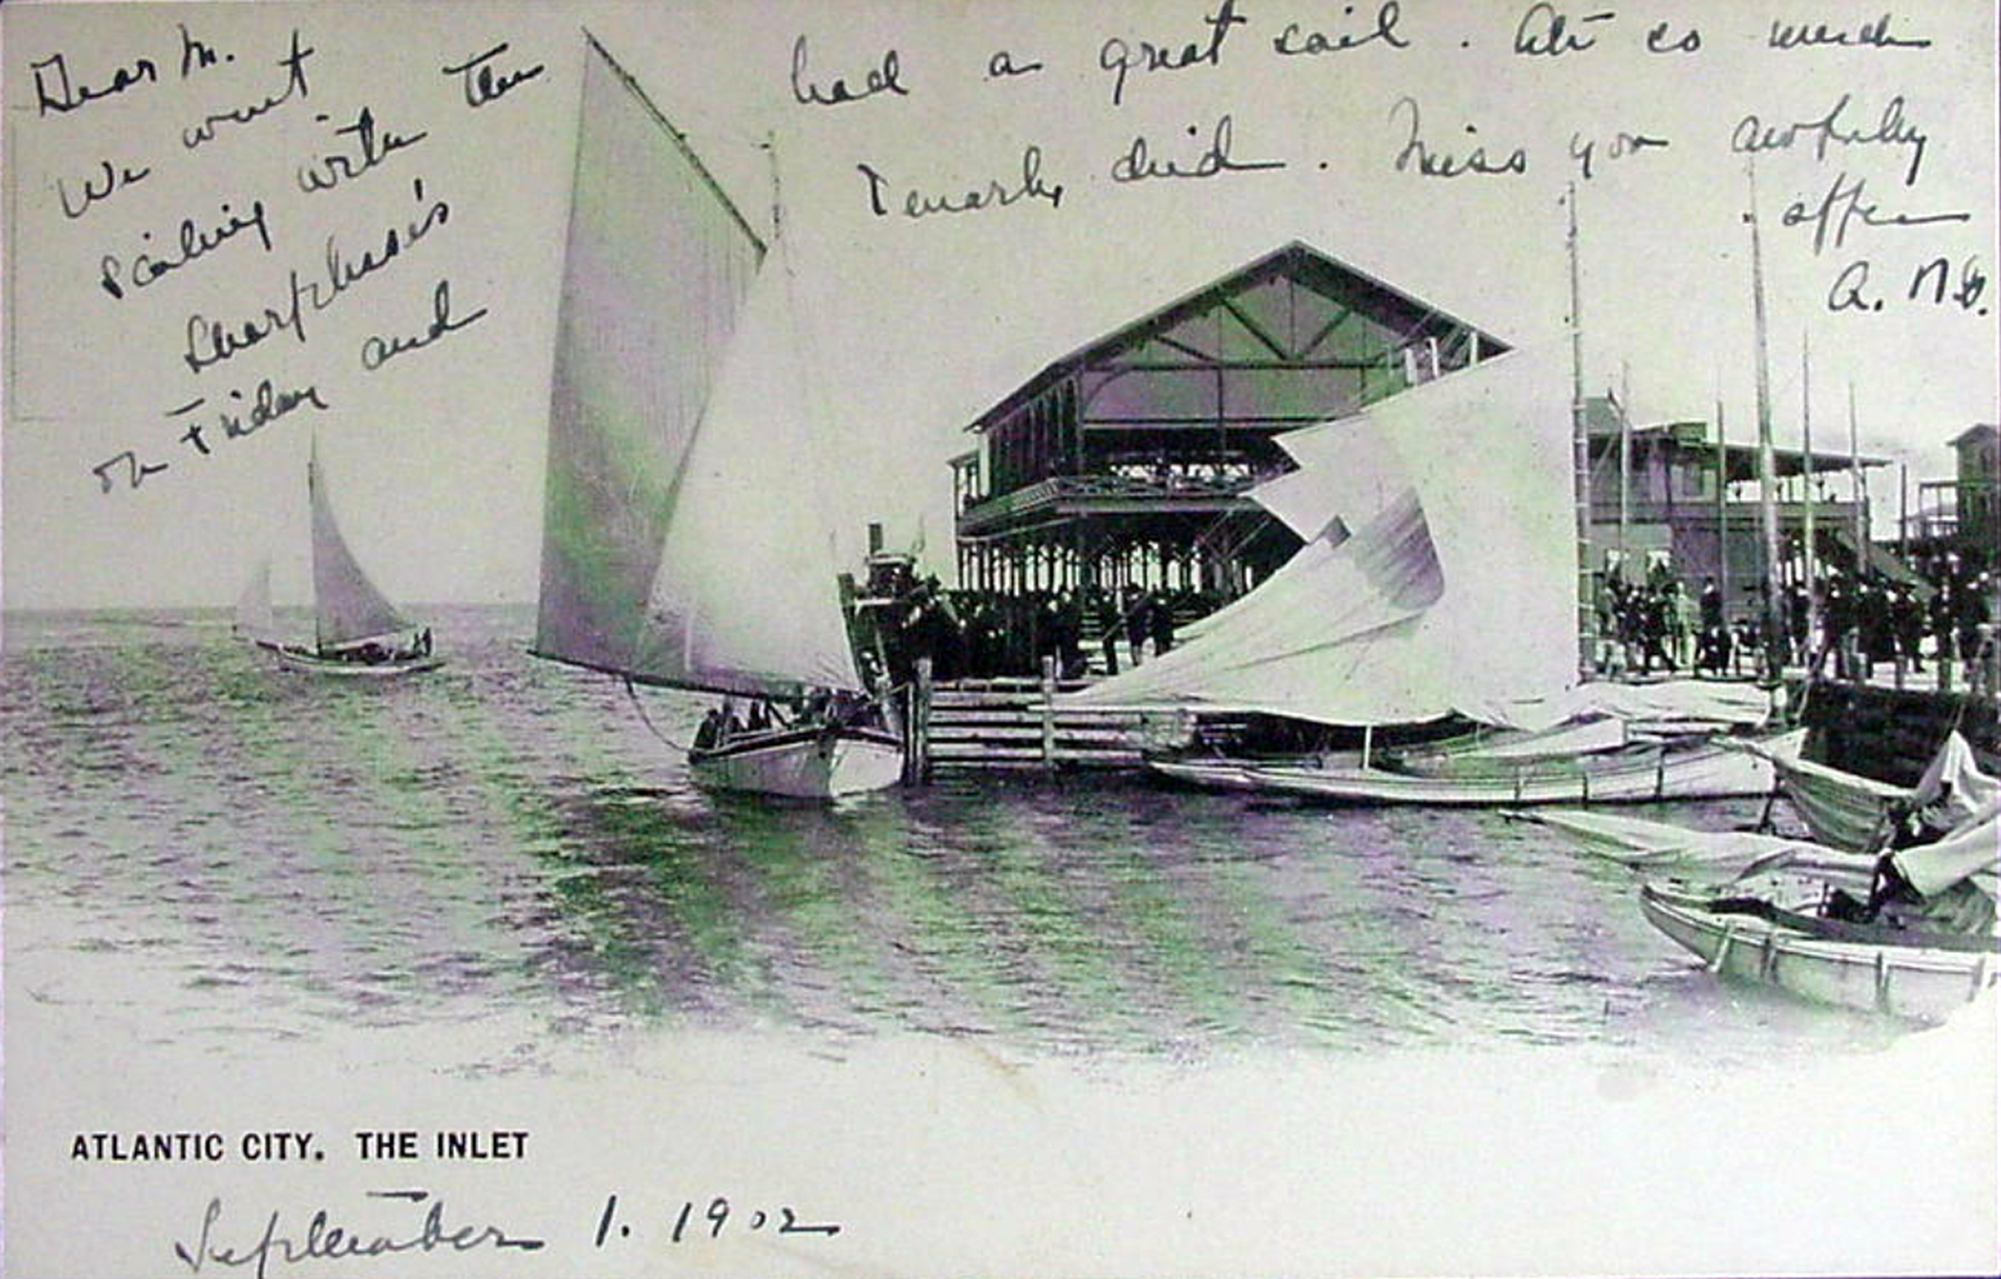 Dear M.
We went
sailing with the
Sharpless's
on Friday and
had a great sail. Ate so much
did. Miss you awfully
A. N. B.
ATLANTIC CITY. THE INLET
September 1. 1902